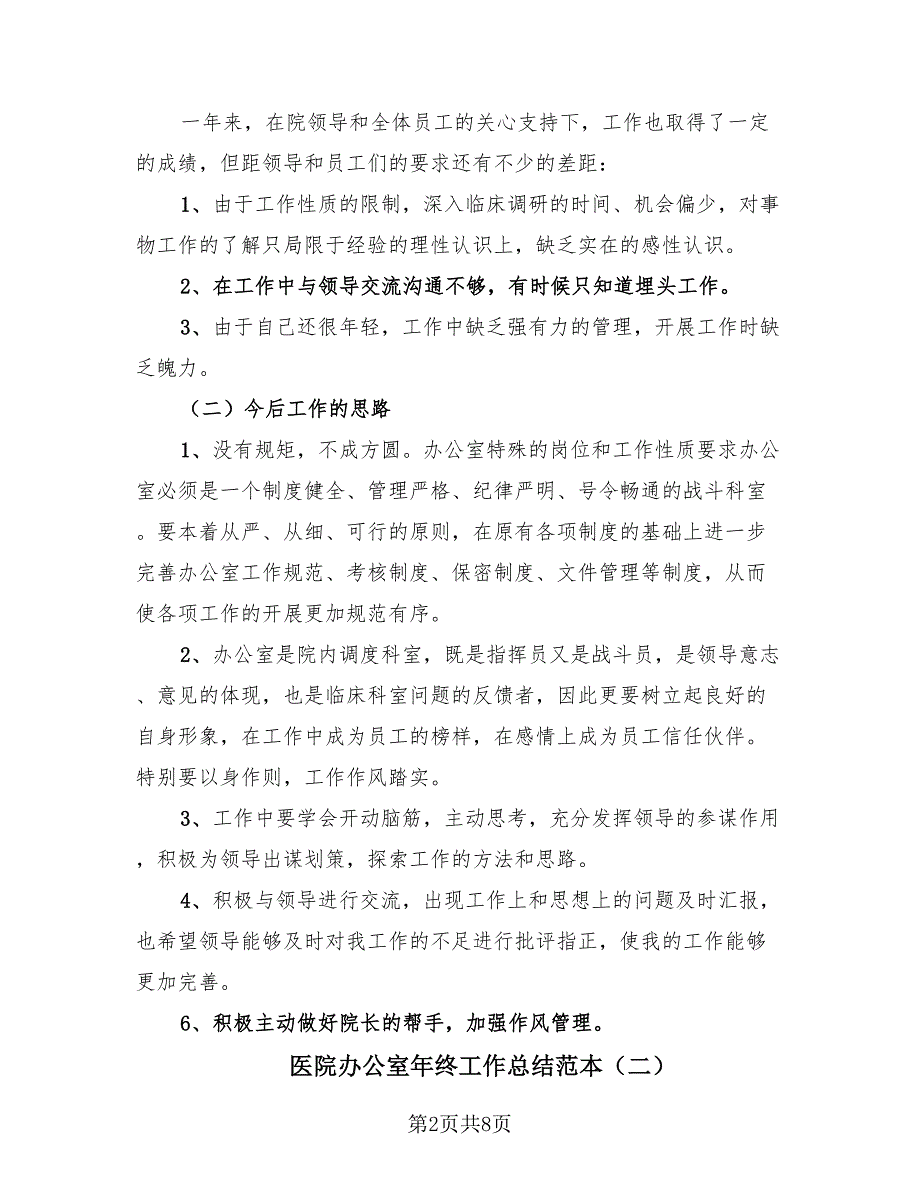 一年来，在院领导和全体员工的关心支持下，工作也取得了一定
的成绩，但距领导和员工们的要求还有不少的差距：
1、由于工作性质的限制，深入临床调研的时间、机会偏少，对事
物工作的了解只局限于经验的理性认识上，缺乏实在的感性认识。
2、在工作中与领导交流沟通不够，有时候只知道埋头工作。
3、由于自己还很年轻，工作中缺乏强有力的管理，开展工作时缺
乏魄力。
（二）今后工作的思路
1、没有规矩，不成方圆。办公室特殊的岗位和工作性质要求办公
室必须是一个制度健全、管理严格、纪律严明、号令畅通的战斗科室
。要本着从严、从细、可行的原则，在原有各项制度的基础上进一步
完善办公室工作规范、考核制度、保密制度、文件管理等制度，从而
使各项工作的开展更加规范有序。
2、办公室是院内调度科室，既是指挥员又是战斗员，是领导意志
、意见的体现，也是临床科室问题的反馈者，因此更要树立起良好的
自身形象，在工作中成为员工的榜样，在感情上成为员工信任伙伴。
特别要以身作则，工作作风踏实。
3、工作中要学会开动脑筋，主动思考，充分发挥领导的参谋作用
，积极为领导出谋划策，探索工作的方法和思路。
4、积极与领导进行交流，出现工作上和思想上的问题及时汇报，
也希望领导能够及时对我工作的不足进行批评指正，使我的工作能够
更加完善。
6、积极主动做好院长的帮手，加强作风管理。
医院办公室年终工作总结范本（二）
第2页共8页